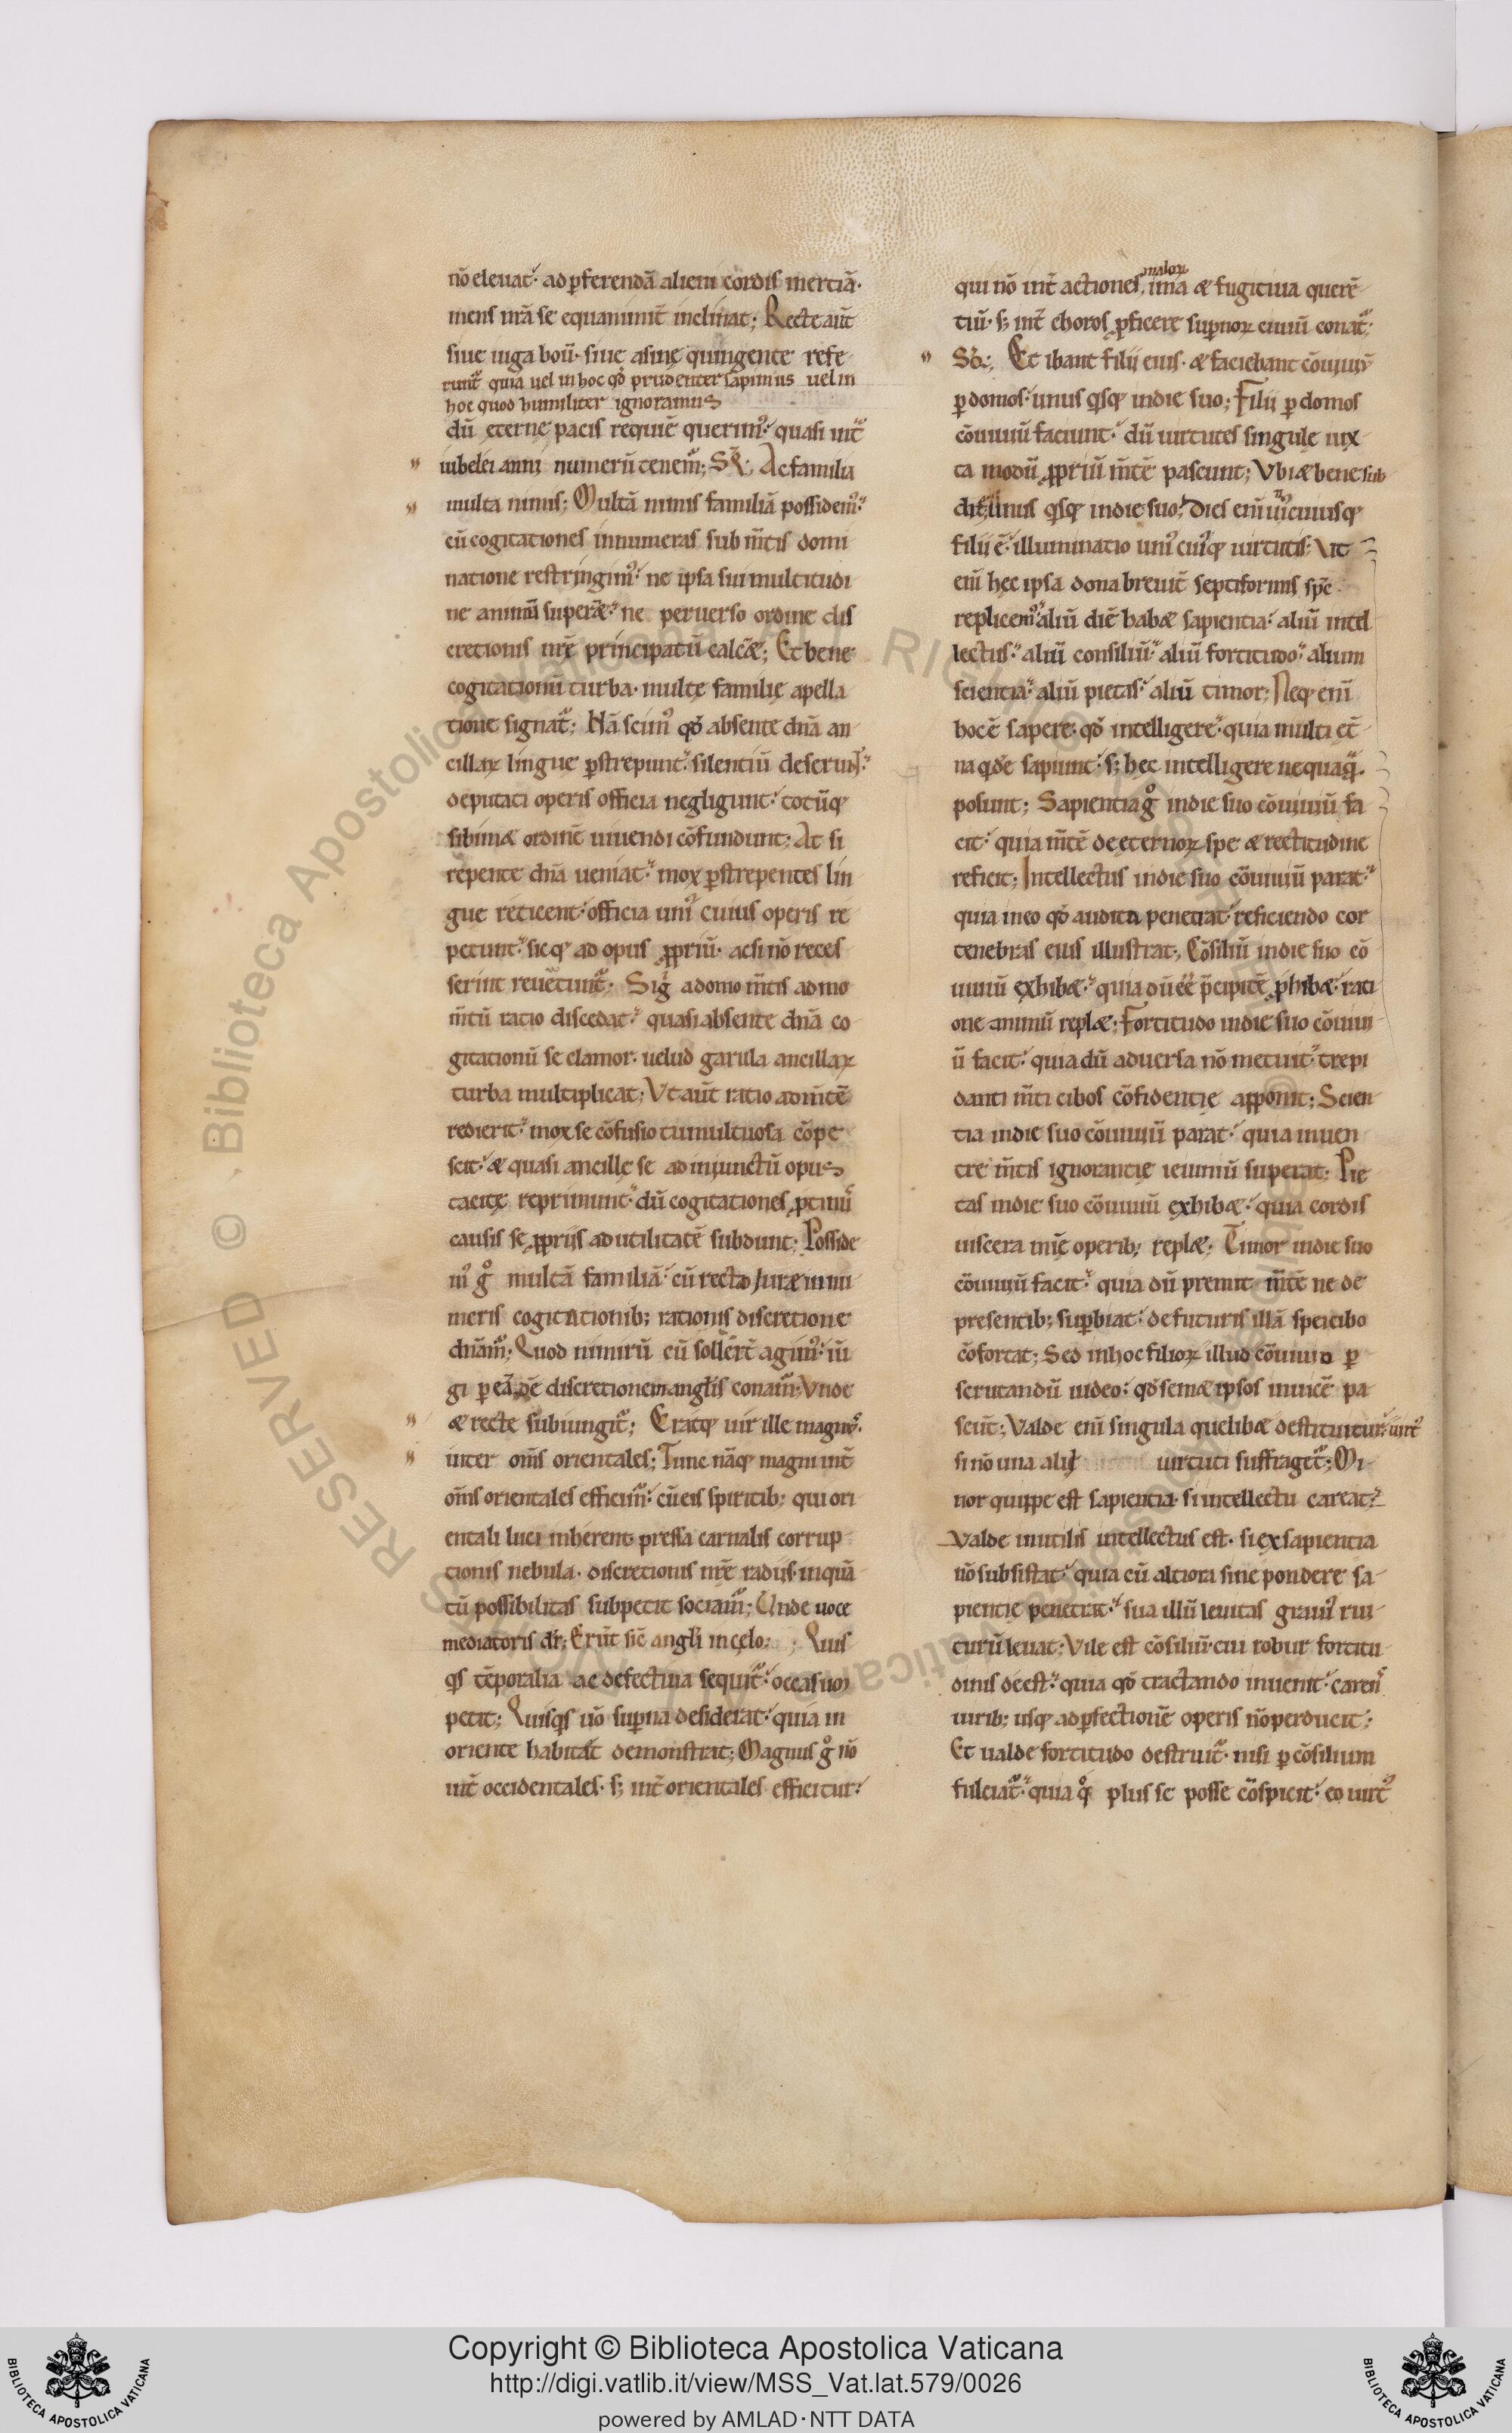 nō eleuat· ad p̄ferendā alieni cordis inertiā·
mens nr̄a se equanimit̄ inclinat; Recte aūt
siue iuga boū· siue asinę quingente refe-
runt᷑ quia uel in hoc qd̄ prudenter sapimus uel in
hoc quod humiliter ignoramus
dū ęterne pacis requiē querim᷒· quasi int᷑
iubelei anni numerū tenem᷒; Seq̄. Ac familia
multa nimis; Multā nimis familiā possidem᷒·
cū cogitationes innumeras sub m̄tis domi
natione restringim᷒· ne ipsa sui multitudi
ne animū superǣt· ne peruerso ordine dis
cretionis nr̄ę principatū calcǣt; Et bene
cogitationū turba· multę familię apella
tione signat᷑; Nā scim᷒ qd̄ absente dn̄a an
cillaꝝ linguę ꝑstrepunt· silentiū deserunt·
deputati operis officia negligunt· totūq;
sibimæt ordinē uiuendi cōfundunt; At si
repente dn̄a ueniat· mox ꝑstrepentes lin
gue reticent· officia uni᷒ cuius operis re
petunt· sicq; ad opus ꝓpriū· acsi nō reces
serint reuertunt᷑· Si g̊ a domo m̄tis ad mo
m̄tū ratio discedat· quasi absente dn̄a co
gitationū se clamor· uelud garula ancillaꝝ
turba multiplicat; Vt aūt ratio ad m̄tē
redierit· mox se cōfusio tumultuosa cōpe
scit· æt quasi ancille se ad iniunctū opus
tacite reprimunt· dū cogitationes ꝓtinus
causis se ꝓpriis ad utilitatē subdunt; Posside
m᷒ g̊ multā familiā· cū recto iuræ innu
meris cogitationib; rationis discretione
dn̄am᷒; Quod nimirū cū sollert̄ agim᷒· iū
gi ꝑ eā dē discretionem angl̄is conam᷒; Vnde
æt recte subiungit᷑; Eratq; uir ille magnus·
inter om̄s orientales; Tunc nāq; magni int̄
om̄s orientales efficim᷒· cū eis spiritib; qui ori
entali luci inherent· pressa carnalis corrup
tionis nebula· discretionis nr̄ę radiis· inquā
tū possibilitas subpetit sociam᷒; Unde uoce
mediatoris dr̄; Erūt sic̄ angl̄i in celo; Quis
qs tēporalia ac defectiua sequit᷑· occasum
petit; Quisqs ūo superna desiderat· quia in
oriente habitat demonstrat; Magnus g̊ nō
int̄ occidentales· s; int̄ orientales efficitur·
qui nō int̄ actiones, maloꝝ ima æt fugitiua querē
tiū· s; int̄ choros ꝓficere supernoꝝ ciuiū conat᷑;
Sq̄; Et ibant filii eius· æt faciebant cōuiuiū
ꝑ domos· unus qsq; in die suo; Filii ꝑ domos
cōuiuiū faciunt· dū uirtutes singule iux
ta modū ꝓpriū m̄tē pascunt; Vbi æt bene sub
dit᷑· Unus qsq; in die suo; Dies eni uni᷒cuiusq;
filii ē· illuminatio uni᷒ cui᷒q; uirtutis; Vt
enī hec ipsa dona breuit̄ septiformis sp̄c
replicem᷒· aliū diē habæt sapientia· aliū intel
lectus· aliū consiliū· aliū fortitudo· alium
scientia· aliū pietas· aliū timor; Neq; enī
hoc ē sapere· qd̄ intelligere· quia multi et̄
na qde sapiunt· s; hec intelligere nequaq̄·
posunt; Sapientia g̊ in die suo cōuiuiū fa
cit· quia m̄tē de eternoꝝ spe æt rectitudine
reficit; Intellectus in die suo cōuiuiū parat·
quia in eo qd̄ audita penetrat· reficiendo cor
tenebras eius illustrat; Cōsiliū in die suo cō
uiuiū exhibæt· quia dū ee p̄cipitē ꝓhibæt· rati
one animū replæt; Fortitudo in die suo cōuiui
ū facit· quia dū aduersa nō metuit· trepi
danti m̄ti cibos cōfidentię apponit; Scien
tia in die suo cōuiuiū parat· quia in uen
tre m̄tis ignorantię ieiuniū superat; Pie
tas in die suo cōuiuiū exhibæt· quia cordis
uiscera mīe operib; replæt; Timor in die suo
cōuiuiū facit· quia dū premit m̄tē ne de
presentib; superbiat· de futuris illā spei cibo
cōfortat; Sed in hoc filioꝝ illud cōuiuio ꝑ
scrutandū uideo· qd̄ semæt ipsos inuicē pa
scunt; Valde enī singula quelibæt destituitur· uirt᷒
si nō una alii uirtuti suffraget᷑; Mi-
nor quippe est sapientia· si intellectu careat·
Valde inutilis intellectus est· si ex sapientia
nō subsistat· quia cū altiora sine pondere sa-
pientię penetrat· sua illū leuitas graui᷒ rui-
turū leuat; Vile est cōsiliū· cui robur fortitu
dinis deest· quia qd̄ tractando inuenit· carens
uirib; usq; ad ꝑfectionē operis nō perducit;
Et ualde fortitudo destruit᷑· nisi ꝑ cōsilium
fulciat᷑· quia q̊ plus se posse cōspicit· eo uirt᷒
Copyright © Biblioteca Apostolica Vaticana
http://digi.vatlib.it/view/MSS_Vat.lat.579/0026
powered by AMLAD·NTT DATA